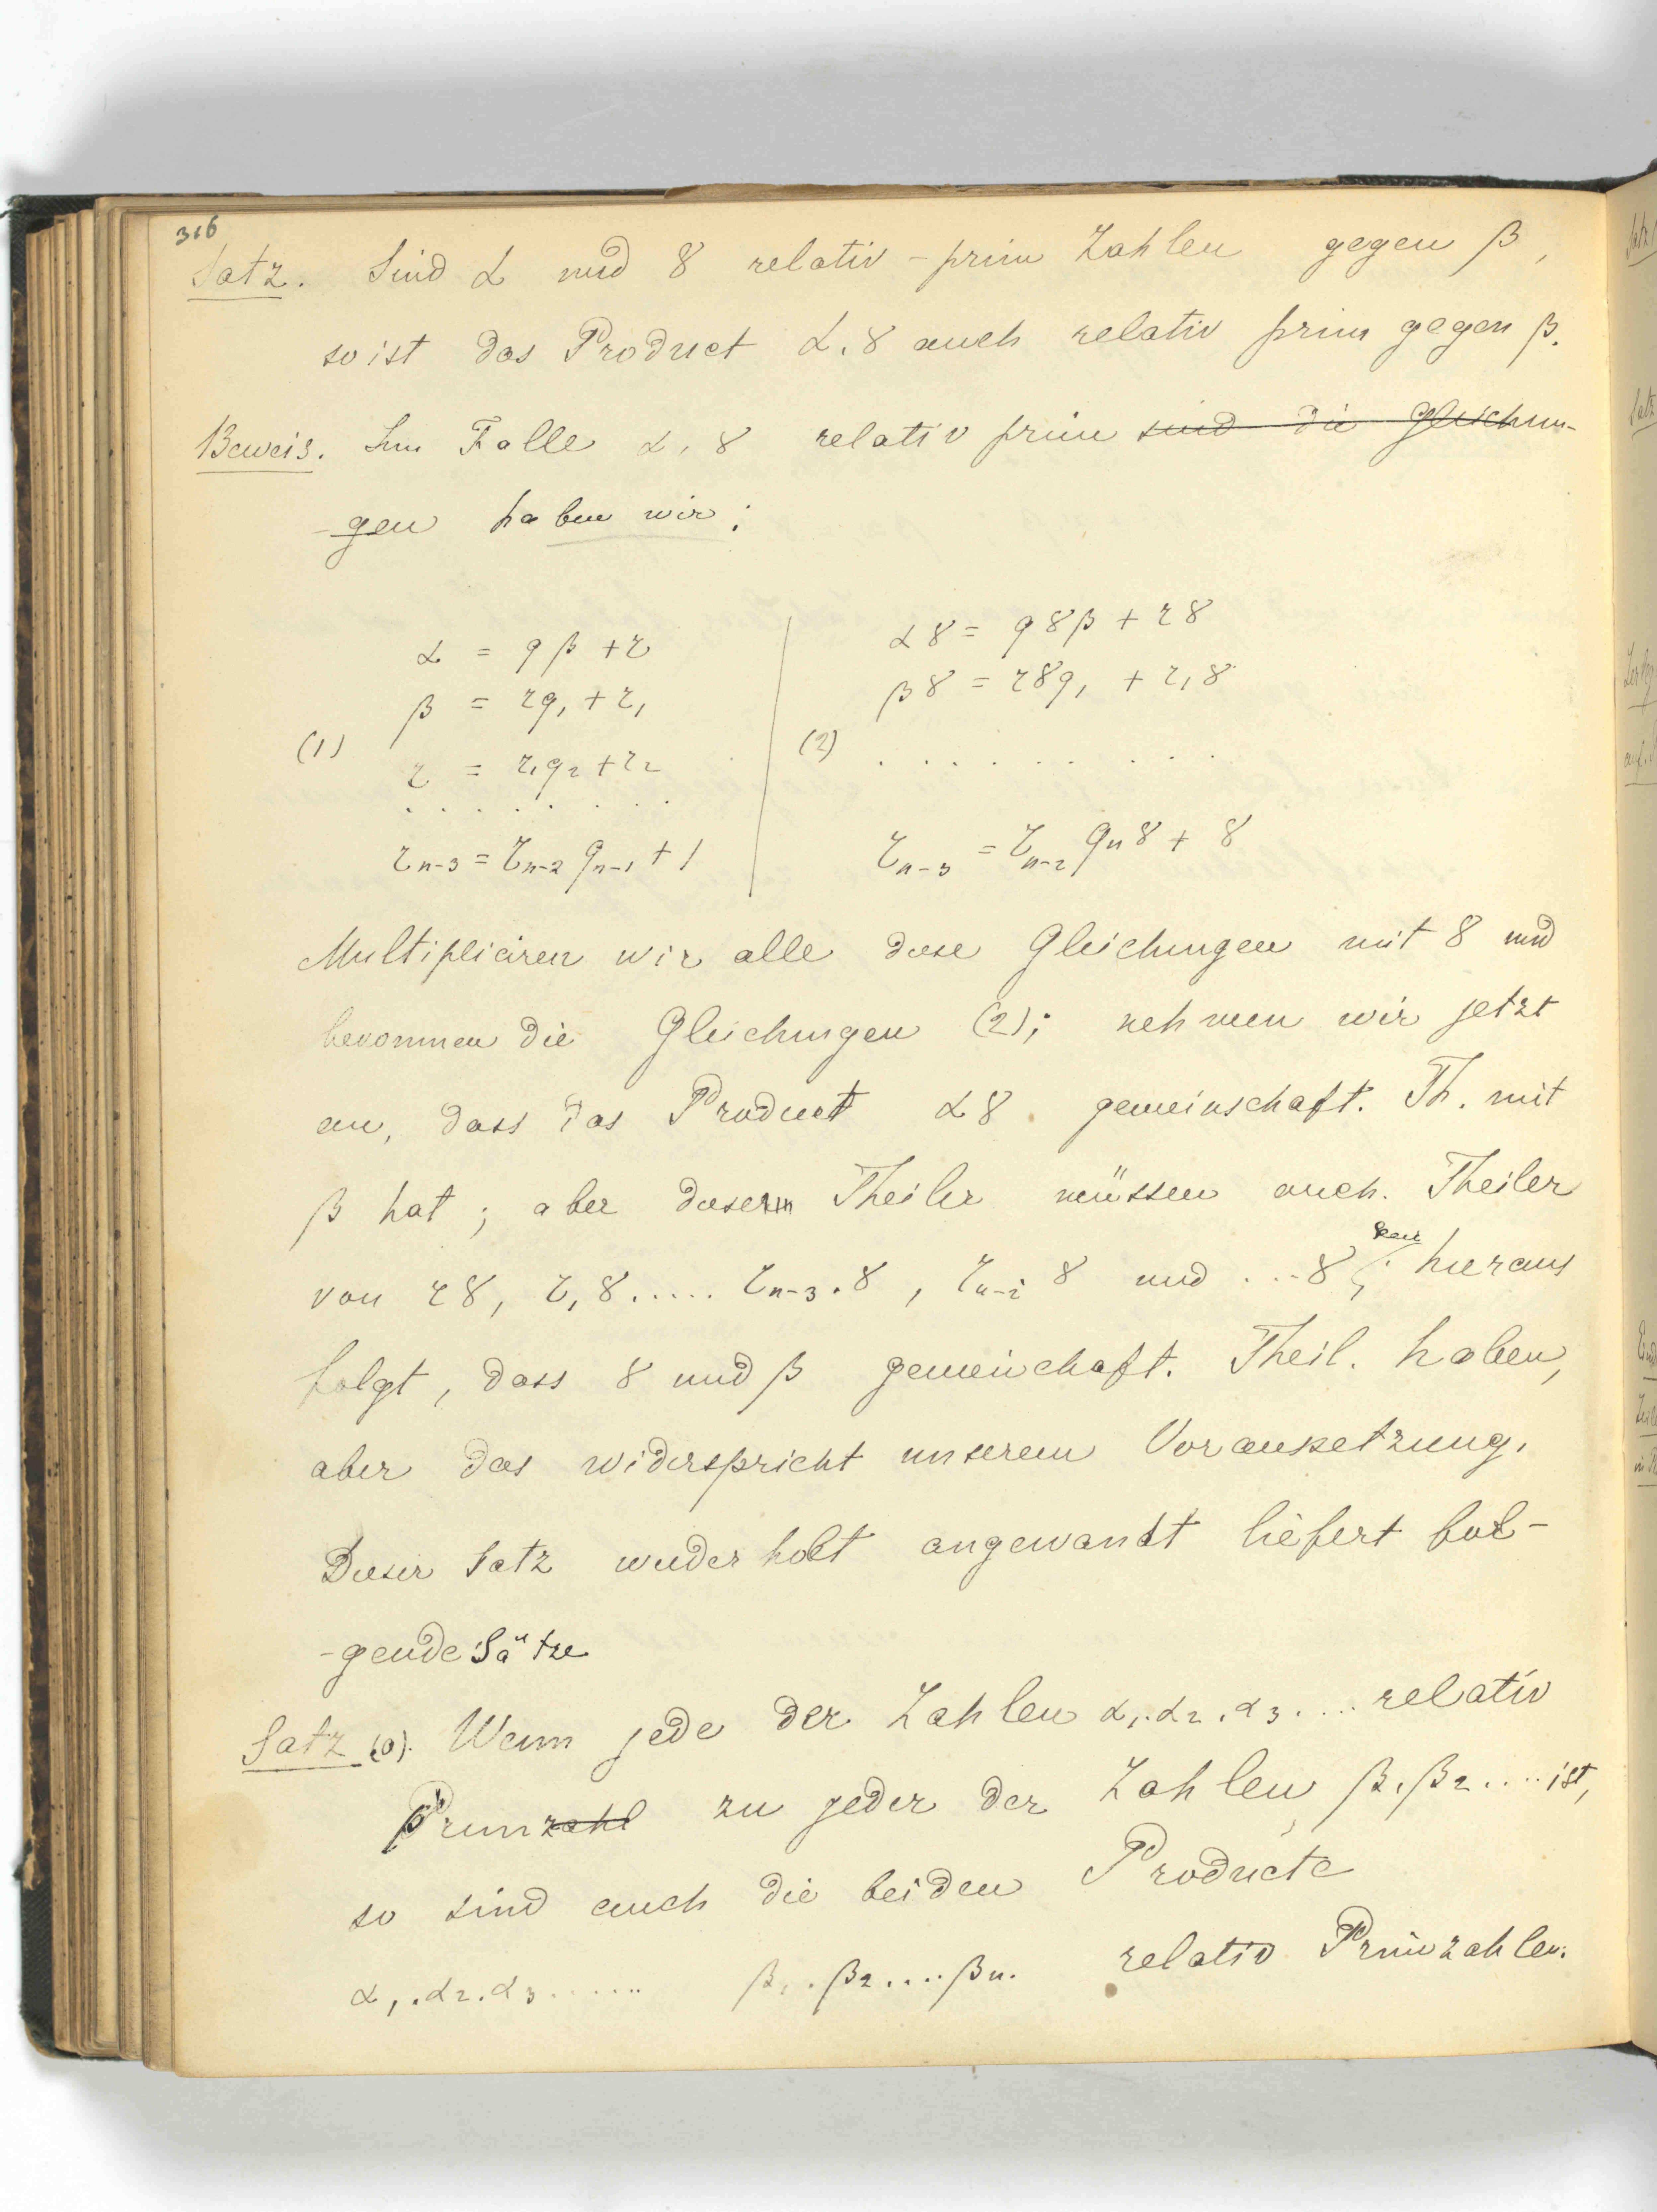 316
Satz. Sind α und γ relativ-prim Zahlen gegen β,
so ist das Product α.γ auch relativ prim gegen β.
Beweis. Im Falle α, γ relativ prim sind die Gleichun-
-gen haben wir:
α = qβ + r
β = rq₁ + r₁
(1)
r = r₁q₂ + r₂
. . . . . . . .
rₙ₋₃ = rₙ₋₂ qₙ₋₁ + 1
αγ = qγβ + rγ
βγ = rγq₁ + r₁γ
(2) . . . . . . . . .
rₙ₋₃ = rₙ₋₂ qₙ γ + γ
Multipliciren wir alle diese Gleichungen mit γ und
bekommen die Gleichungen (2); nehmen wir jetzt
an, dass das Product αγ gemeinschaft. Th. mit
β hat; aber dieser Theiler müssen auch Theiler
von rγ, r₁γ ..... rₙ₋₃.γ, rₙ₋₂ γ und ...γ; hieraus
folgt, dass γ und β gemeinchaft. Theil. haben,
aber das widerspricht unserem Voraussetzung.
Dieser Satz wiederholt angewandt liefert fol-
-gende Sätze
Satz (a). Wenn jede der Zahlen α₁.α₂.α₃.... relativ
Primzahl zu jeder der Zahlen β₁β₂.... ist,
so sind auch die beiden Producte
α₁.α₂.α₃...... β₁.β₂....βₙ. relativ Primzahlen.